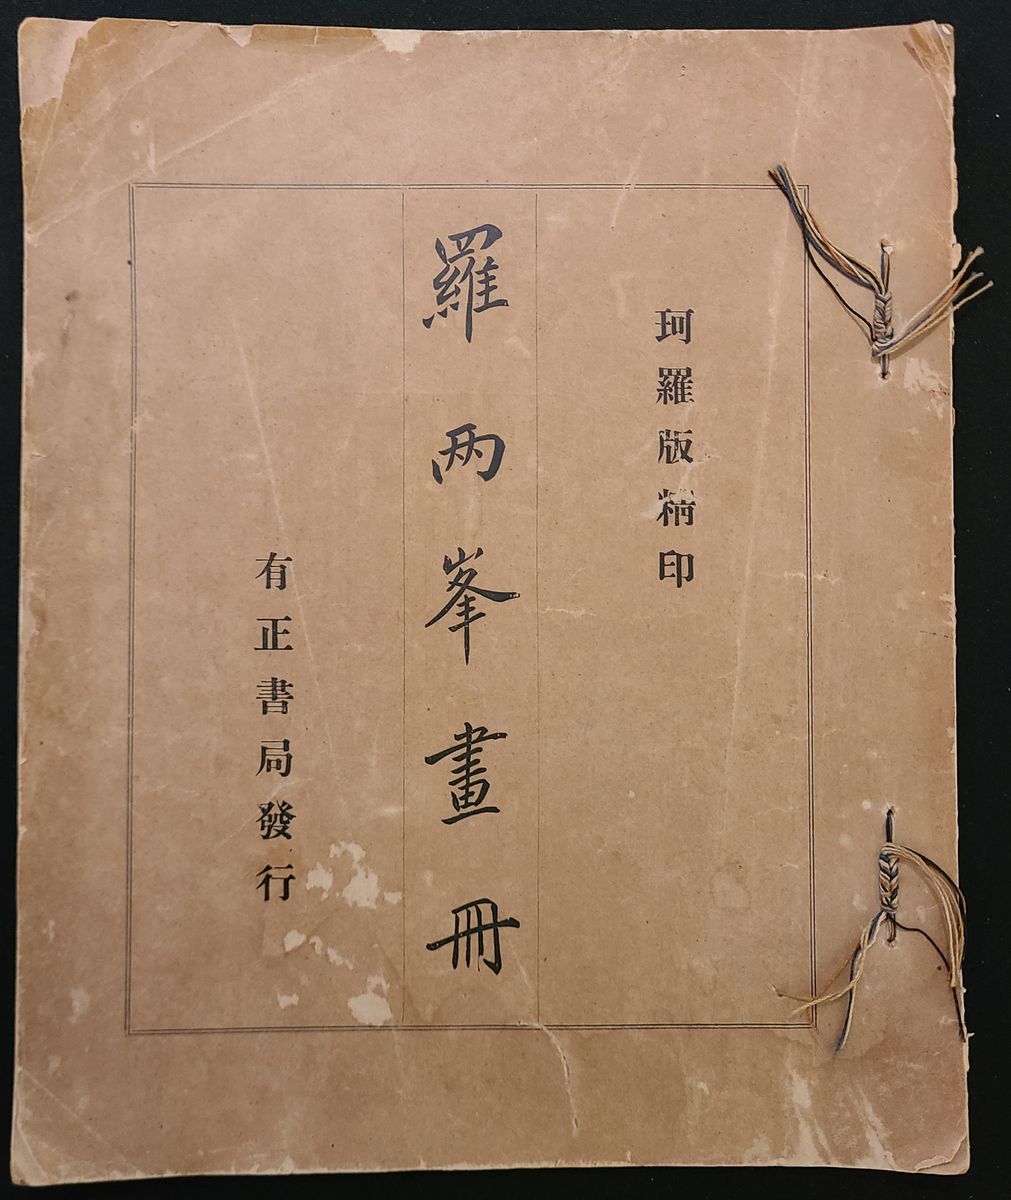 珂羅版精印
羅两峯畫冊
有正書局發行